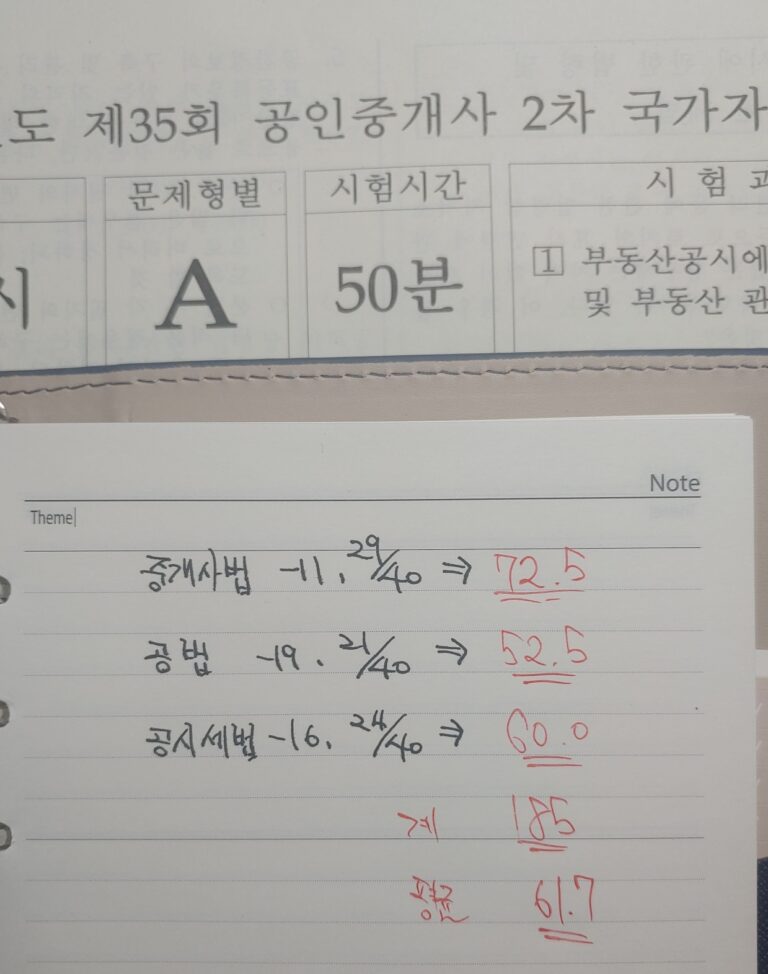 도 제35회 공인중개사 2차 국가자
문제형별 시험시간 시 험 과
시 A 50분 1 부동산공시에
및 부동산 관
Note
Theme
중개사법 -11. 29/40 ⇒ 72.5
공법 -19. 21/40 ⇒ 52.5
공시세법 -16. 24/40 ⇒ 60.0
계 185
평균 61.7